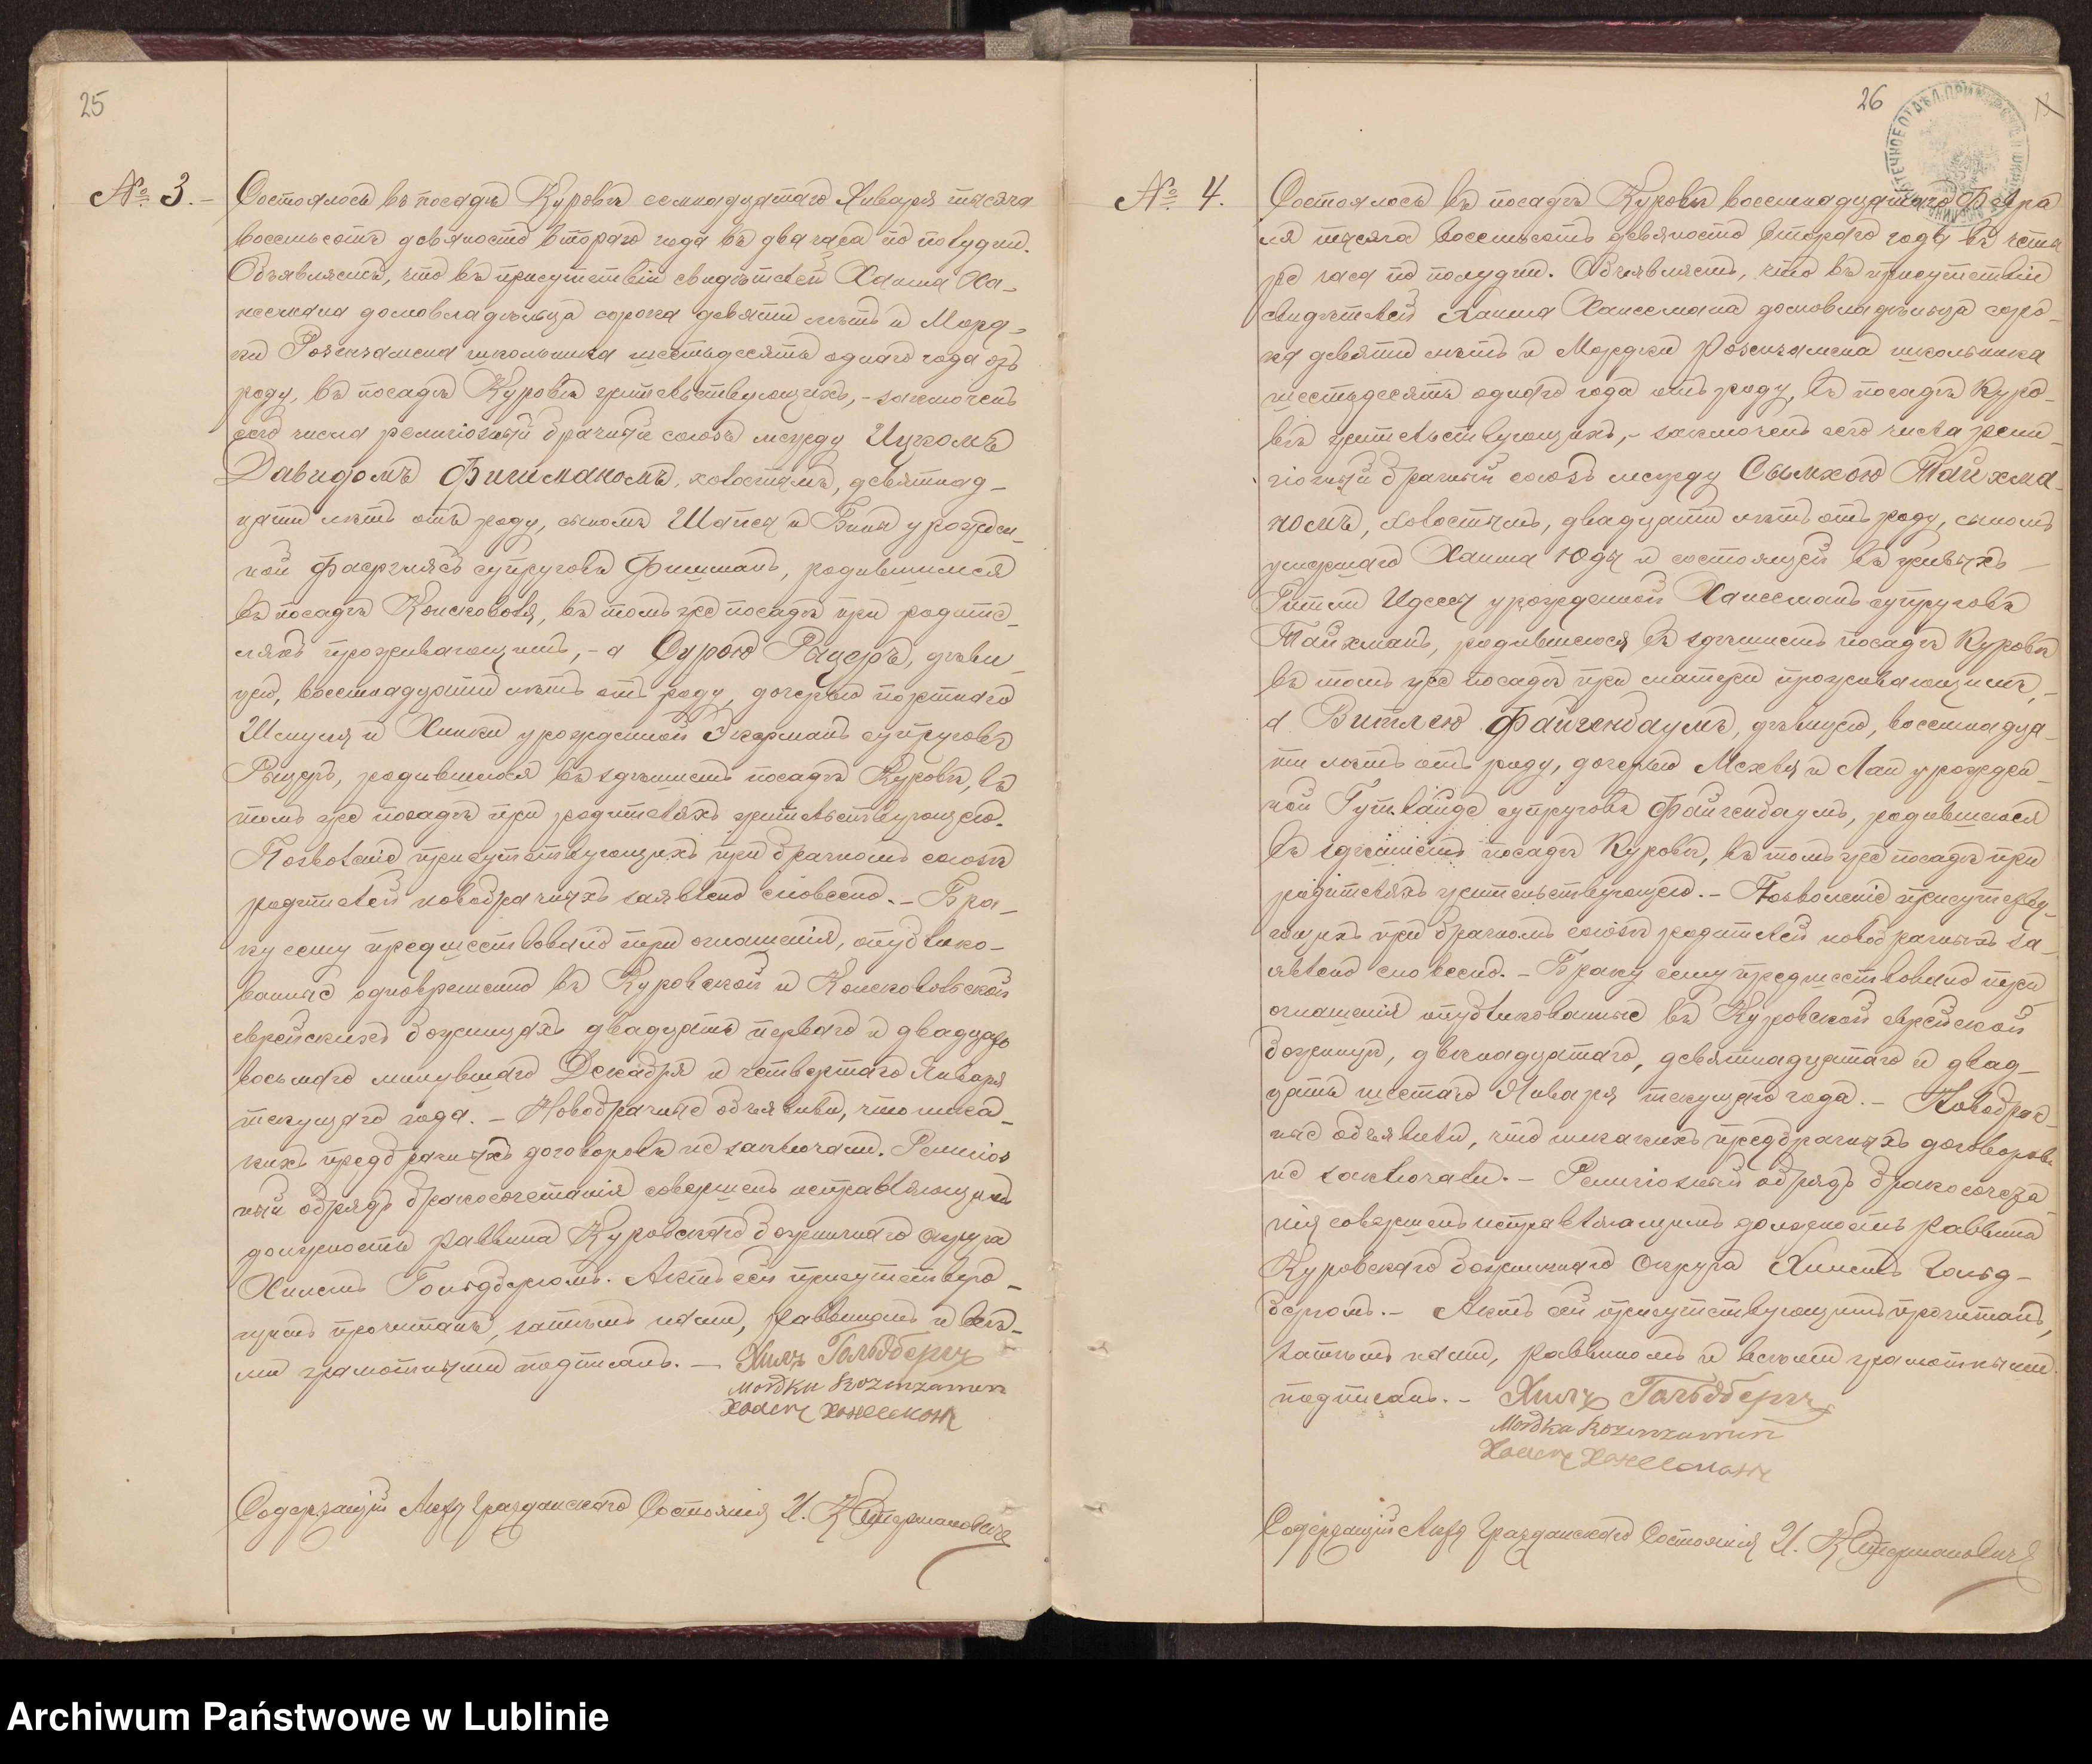 25
№ 3. –
Состоялось въ посадѣ Куровѣ семнадцатаго Января тысяча
восемьсотъ девяносто втораго года въ два часа по полудни.
Объявляемъ, что въ присутствіи свидѣтелей Хаима Ха-
несмана домовладѣльца сорока девяти лѣтъ и Морд-
ки Розенцамена школьника шестьдесятъ одного года отъ
роду, въ посадѣ Куровѣ жительствующихъ, – заключенъ
сего числа религіозный брачный союзъ между Ицкомъ
Давидомъ Фишманомъ, холостымъ, девятнад-
цати лѣтъ отъ роду, сыномъ Шапся и Бины урожден-
ной супруговъ Фишманъ, родившимся
въ посадѣ Консковоля, въ томъ же посадѣ при родите-
ляхъ проживающимъ, – а Сурою Рыцеръ, дѣви-
цею, восемнадцати лѣтъ отъ роду, дочерью
Шмуля и Хинки урожденной Экерманъ супруговъ
Рыцеръ, родившеюся въ здѣшнемъ посадѣ Куровѣ, въ
томъ же посадѣ при родителяхъ жительствующею.
Позволеніе присутствующихъ при брачномъ союзѣ
родителей новобрачныхъ заявлено словесно. – Бра-
ку сему предшествовало три оглашенія, опублико-
ванные одновременно въ Куровской и Консковольской
еврейскихъ божницахъ двадцать перваго и двадцать
восьмаго минувшаго Декабря и четвертаго Января
текущаго года. – Новобрачные объявили, что ника-
кихъ предбрачныхъ договоровъ не заключали. Религіоз
ный обрядъ бракосочетанія совершенъ исправляющимъ
должность раввина Куровскаго божничнаго округа
Хилемъ Гольдбергомъ. Актъ сей присутствую-
щимъ прочитанъ, затѣмъ нами, раввиномъ и всѣ-
ми грамотными подписанъ. – Хилъ Гольдбергъ
Мордка Розенцаменъ
Хаимъ Ханесманъ
Содержащій Акты Гражданскаго Состоянія И.
26
№ 4.
Состоялось въ посадѣ Куровѣ восемнадцатаго Февра
ля тысяча восемьсотъ девяносто втораго года въ четы
ре часа по полудни. Объявляемъ, что въ присутствіи
свидѣтелей Хаима Ханесмана домовладѣльца соро-
ка девяти лѣтъ и Мордки Розенцамена школьника
шестьдесятъ одного года отъ роду, въ посадѣ Куро-
вѣ жительствующихъ, – заключенъ сего числа рели-
гіозный брачный союзъ между Сымхою Тайхма-
номъ, холостымъ, двадцати лѣтъ отъ роду, сыномъ
умершаго Хаима Юды и состоящей въ живыхъ
Гитли Идесы урожденной Ханесманъ супруговъ
Тайхманъ, родившимся въ здѣшнемъ посадѣ Куровѣ
въ томъ же посадѣ при матери проживающимъ, –
а Витлею Файгенбаумъ, дѣвицею, восемнадца-
ти лѣтъ отъ роду, дочерью Мехля и Лаи урожден-
ной Гутвайде супруговъ Файгенбаумъ, родившеюся
въ здѣшнемъ посадѣ Куровѣ, въ томъ же посадѣ при
родителяхъ жительствующею. – Позволеніе присутству-
ющихъ при брачномъ союзѣ родителей новобрачныхъ за-
явлено словесно. – Браку сему предшествовало три
оглашенія опубликованные въ Куровской еврейской
божницѣ, двѣнадцатаго, девятнадцатаго и двад-
цать шестаго Января текущаго года. – Новобрач-
ные объявили, что никакихъ предбрачныхъ договоровъ
не заключали. – Религіозный обрядъ бракосочета
нія совершенъ исправляющимъ должность раввина
Куровскаго божничнаго округа Хилемъ Гольд-
бергомъ. – Актъ сей присутствующимъ прочитанъ,
затѣмъ нами, раввиномъ и всѣми грамотными
подписанъ. – Хилъ Гольдбергъ
Мордка Розенцаменъ
Хаимъ Ханесманъ
Содержащій Акты Гражданскаго Состоянія И.
Archiwum Państwowe w Lublinie